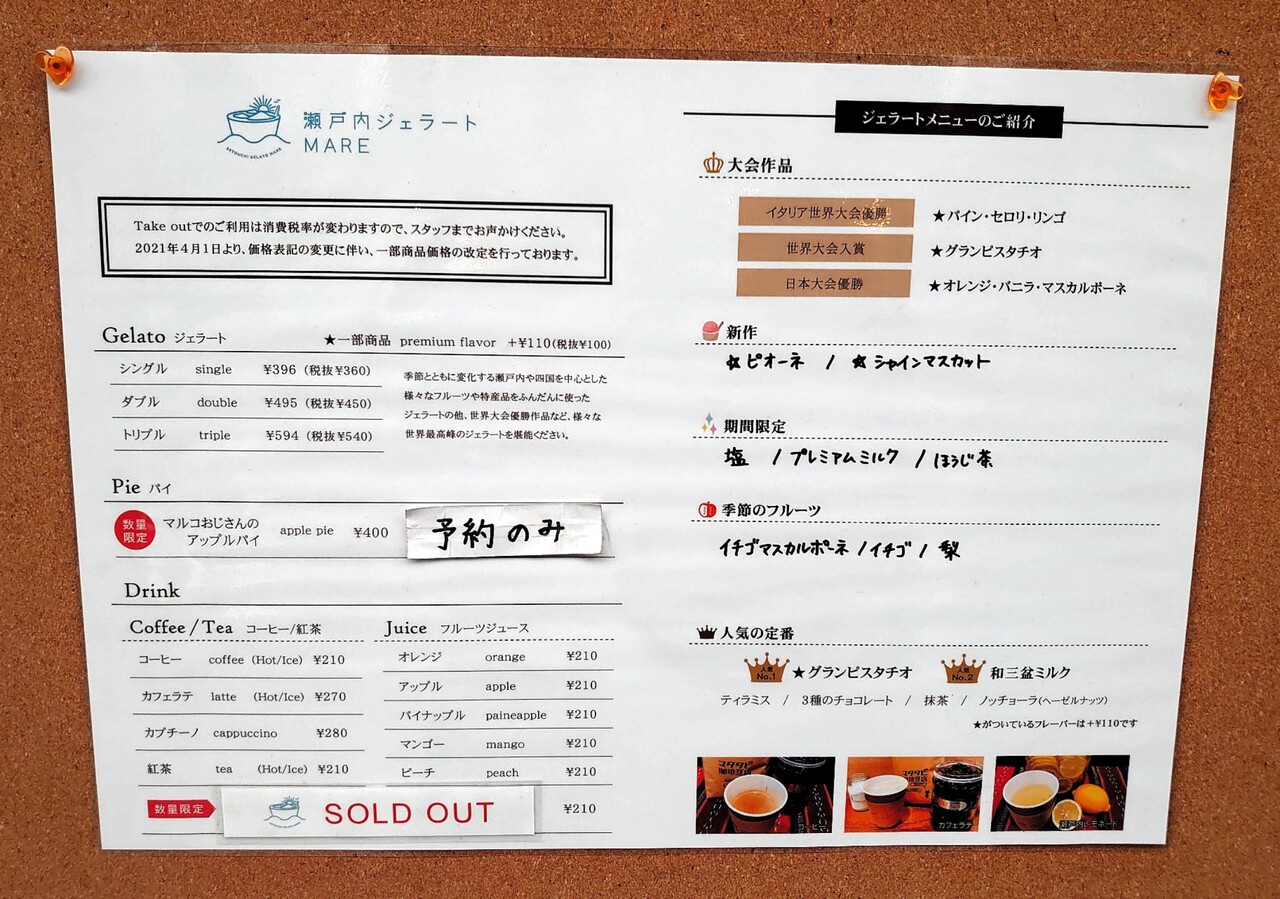 瀬戸内ジェラート
MARE
SETOUCHI GELATO MARE
Take outでのご利用は消費税率が変わりますので、スタッフまでお声かけください。
2021年4月1日より、価格表記の変更に伴い、一部商品価格の改定を行っております。
Gelato ジェラート ★一部商品 premium flavor +¥110(税抜¥100)
シングル single ¥396 (税抜¥360)
ダブル double ¥495 (税抜¥450)
トリプル triple ¥594 (税抜¥540)
季節とともに変化する瀬戸内や四国を中心とした
様々なフルーツや特産品をふんだんに使った
ジェラートの他、世界大会優勝作品など、様々な
世界最高峰のジェラートを堪能ください。
Pie パイ
数量
限定
マルコおじさんの
アップルパイ apple pie ¥400
予約のみ
Drink
Coffee / Tea コーヒー/紅茶
コーヒー coffee (Hot/Ice) ¥210
カフェラテ latte (Hot/Ice) ¥270
カプチーノ cappuccino ¥280
紅茶 tea (Hot/Ice) ¥210
Juice フルーツジュース
オレンジ orange ¥210
アップル apple ¥210
パイナップル paineapple ¥210
マンゴー mango ¥210
ピーチ peach ¥210
数量限定 SOLD OUT ¥210
ジェラートメニューのご紹介
大会作品
イタリア世界大会優勝 ★パイン・セロリ・リンゴ
世界大会入賞 ★グランピスタチオ
日本大会優勝 ★オレンジ・バニラ・マスカルポーネ
新作
☆ピオーネ / ☆シャインマスカット
期間限定
塩 / プレミアムミルク / ほうじ茶
季節のフルーツ
イチゴマスカルポーネ / イチゴ / 梨
人気の定番
人気 No.1 ★グランピスタチオ 人気 No.2 和三盆ミルク
ティラミス / 3種のチョコレート / 抹茶 / ノッチョーラ(ヘーゼルナッツ)
★がついているフレーバーは+¥110です
コーヒー
カフェラテ
瀬戸内レモネード